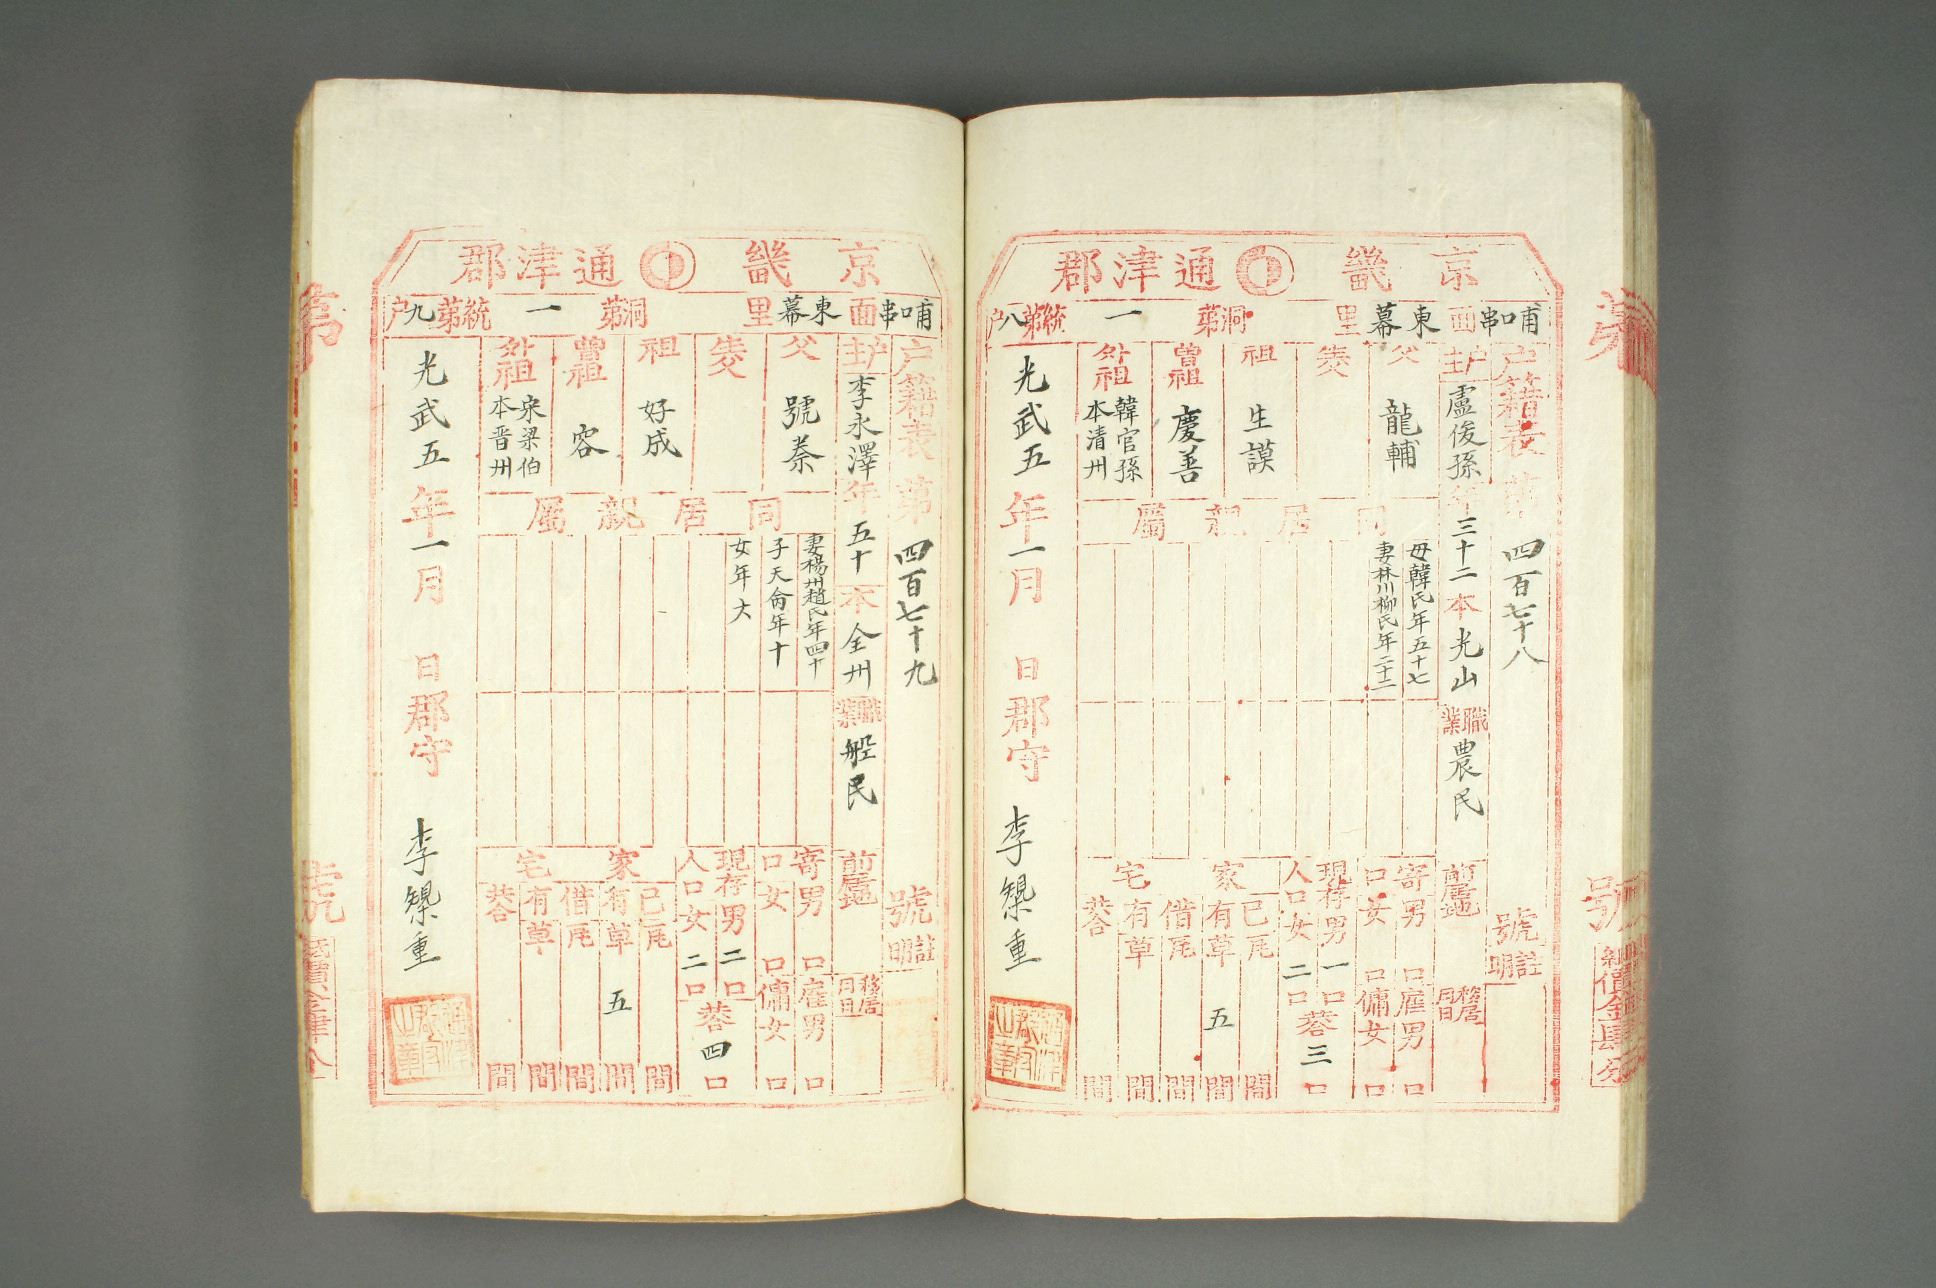 京畿 通津郡
哺口串面 東幕里 洞第一統第八戶
戶籍表 第四百七十八號
註明
戶主 盧俊孫 年三十二 本光山 職業農民
前居地
移居月日
父 龍輔
生父
祖 生謨
曾祖 慶善
外祖 韓官孫 本清州
同居親屬
母韓氏年五十七
妻林川柳氏年二十二
寄口 男口 女口
雇男口 傭女口
現存人口 男一口 女二口 共三口
家宅
己有 瓦間 草五間
借有 瓦間 草間
共間
光武五年一月 日 郡守 李 重
號
紙價金肆分
京畿 通津郡
哺口串面 東幕里 洞第一統第九戶
戶籍表 第四百七十九號
註明
戶主 李永澤 年五十 本全州 職業船民
前居地
移居月日
父 號泰
生父
祖 好成
曾祖 容
外祖 宋梁伯 本晋州
同居親屬
妻楊州趙氏年四十
子天侖年十
女年六
寄口 男口 女口
雇男口 傭女口
現存人口 男二口 女二口 共四口
家宅
己有 瓦間 草五間
借有 瓦間 草間
共間
光武五年一月 日 郡守 李 重
第
號